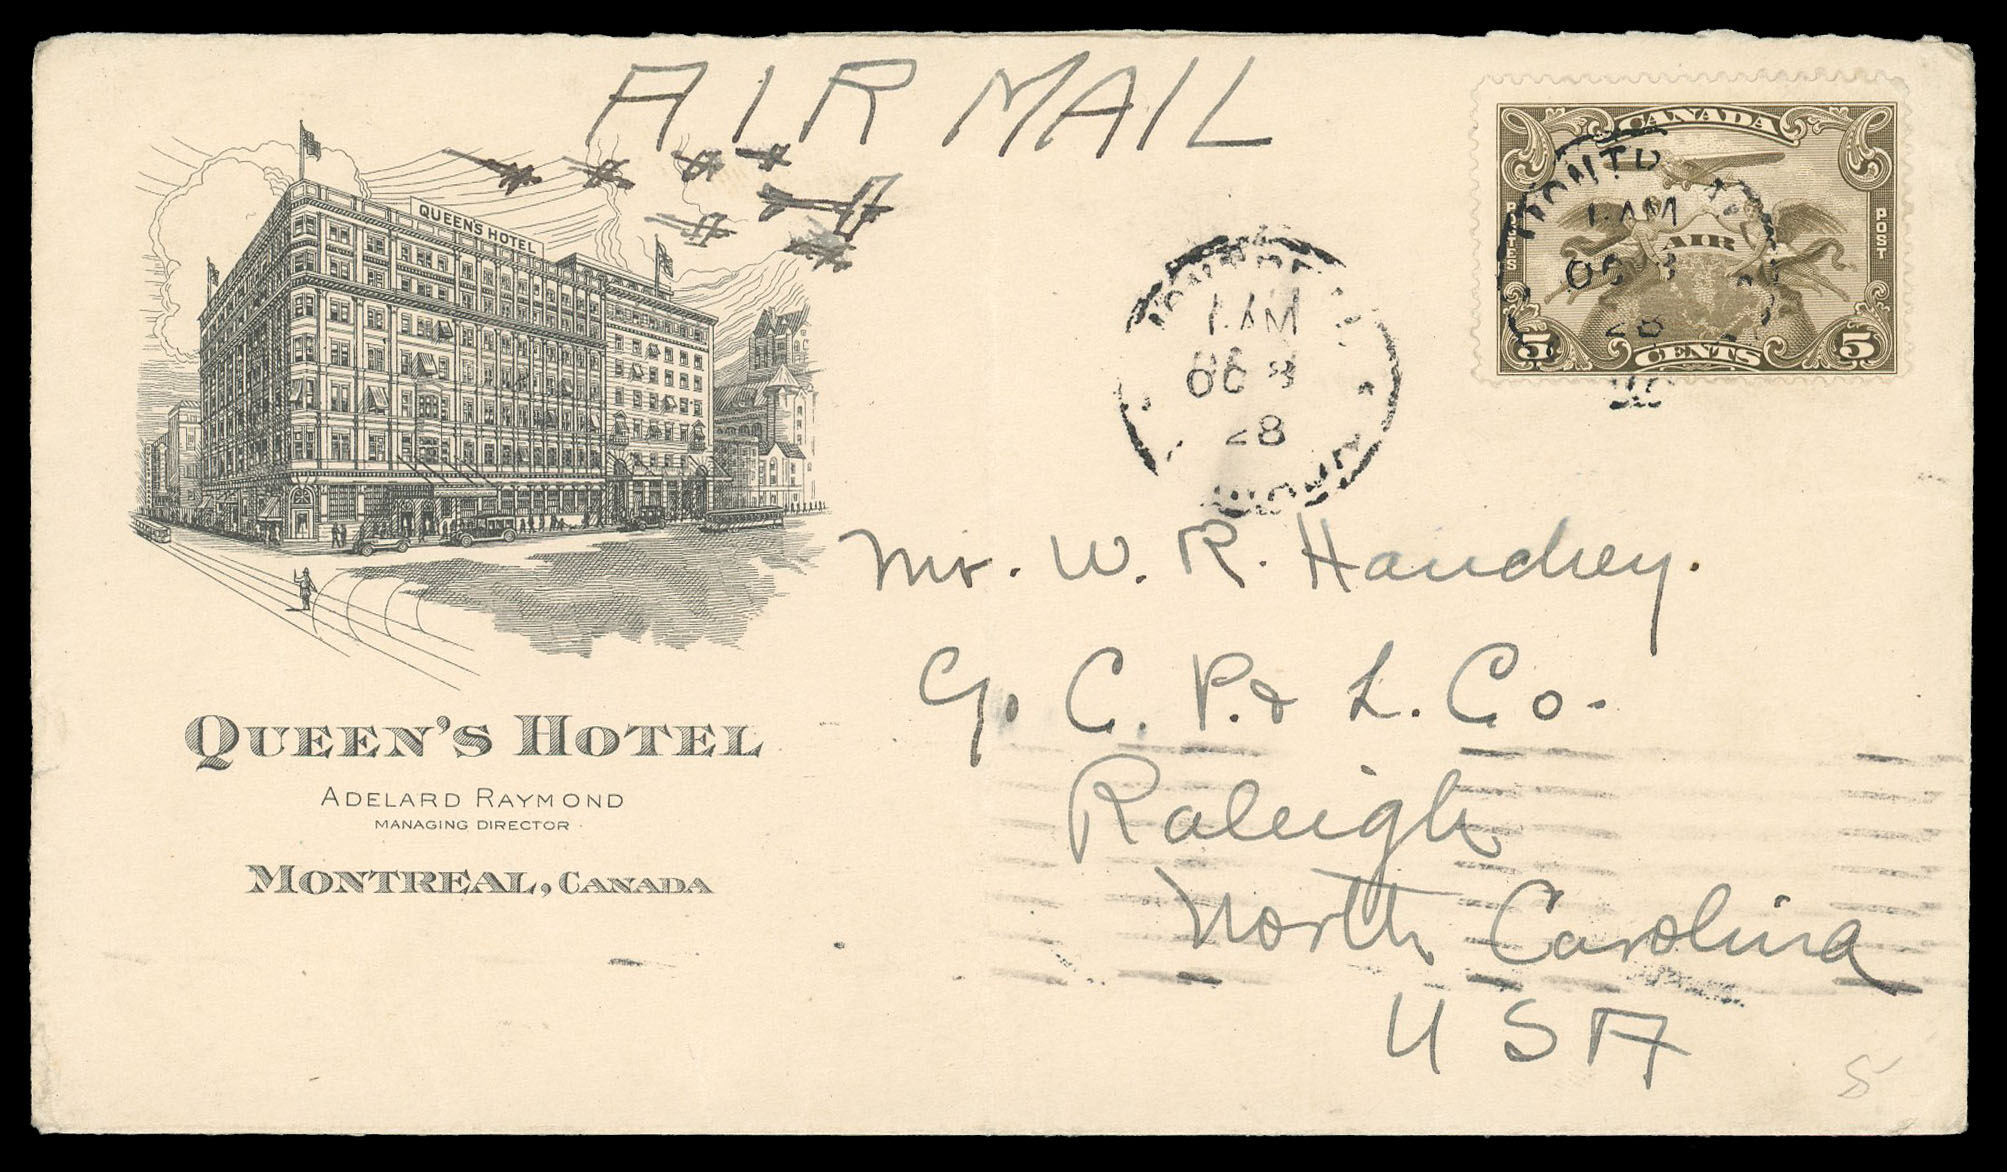 AIR MAIL
QUEEN'S HOTEL
CANADA
POSTES
POST
AIR
5 5
CENTS
1 AM
OC 8
28
1 AM
OC 8
28
Mr. W. R. Handey.
C. P. & L. Co.
Raleigh
North Carolina
USA
QUEEN'S HOTEL
ADELARD RAYMOND
MANAGING DIRECTOR
MONTREAL, CANADA
5